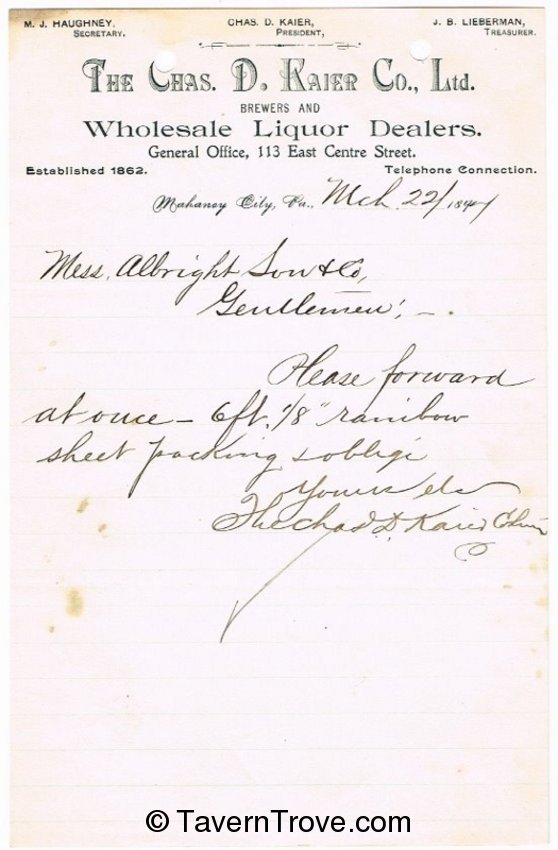 M. J. HAUGHNEY, SECRETARY. CHAS. D. KAIER, PRESIDENT, J. B. LIEBERMAN, TREASURER.
THE CHAS. D. KAIER CO., LTD.
BREWERS AND
WHOLESALE LIQUOR DEALERS.
General Office, 113 East Centre Street.
Established 1862. Telephone Connection.
Mahanoy City, Pa., Mch. 22/ 189
Mess. Albright Son & Co,
Gentlemen; -.
Please forward
at once - 6ft. 1/8" rainbow
sheet packing & oblige
Yours &c
The Chas D. Kaier Co Lim
© TavernTrove.com